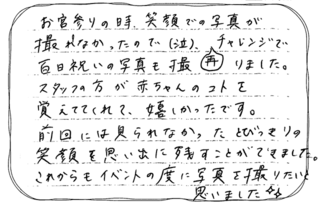 お宮参りの時、笑顔での写真が
撮れなかったので(泣)、チャレンジで
百日祝いの写真も撮再りました。
スタッフの方が赤ちゃんのコトを
覚えててくれて、嬉しかったです。
前回には見られなかったとびっきりの
笑顔を思い出に残すことができました。
これからもイベントの度に写真を撮りたいと
思いました☆☆